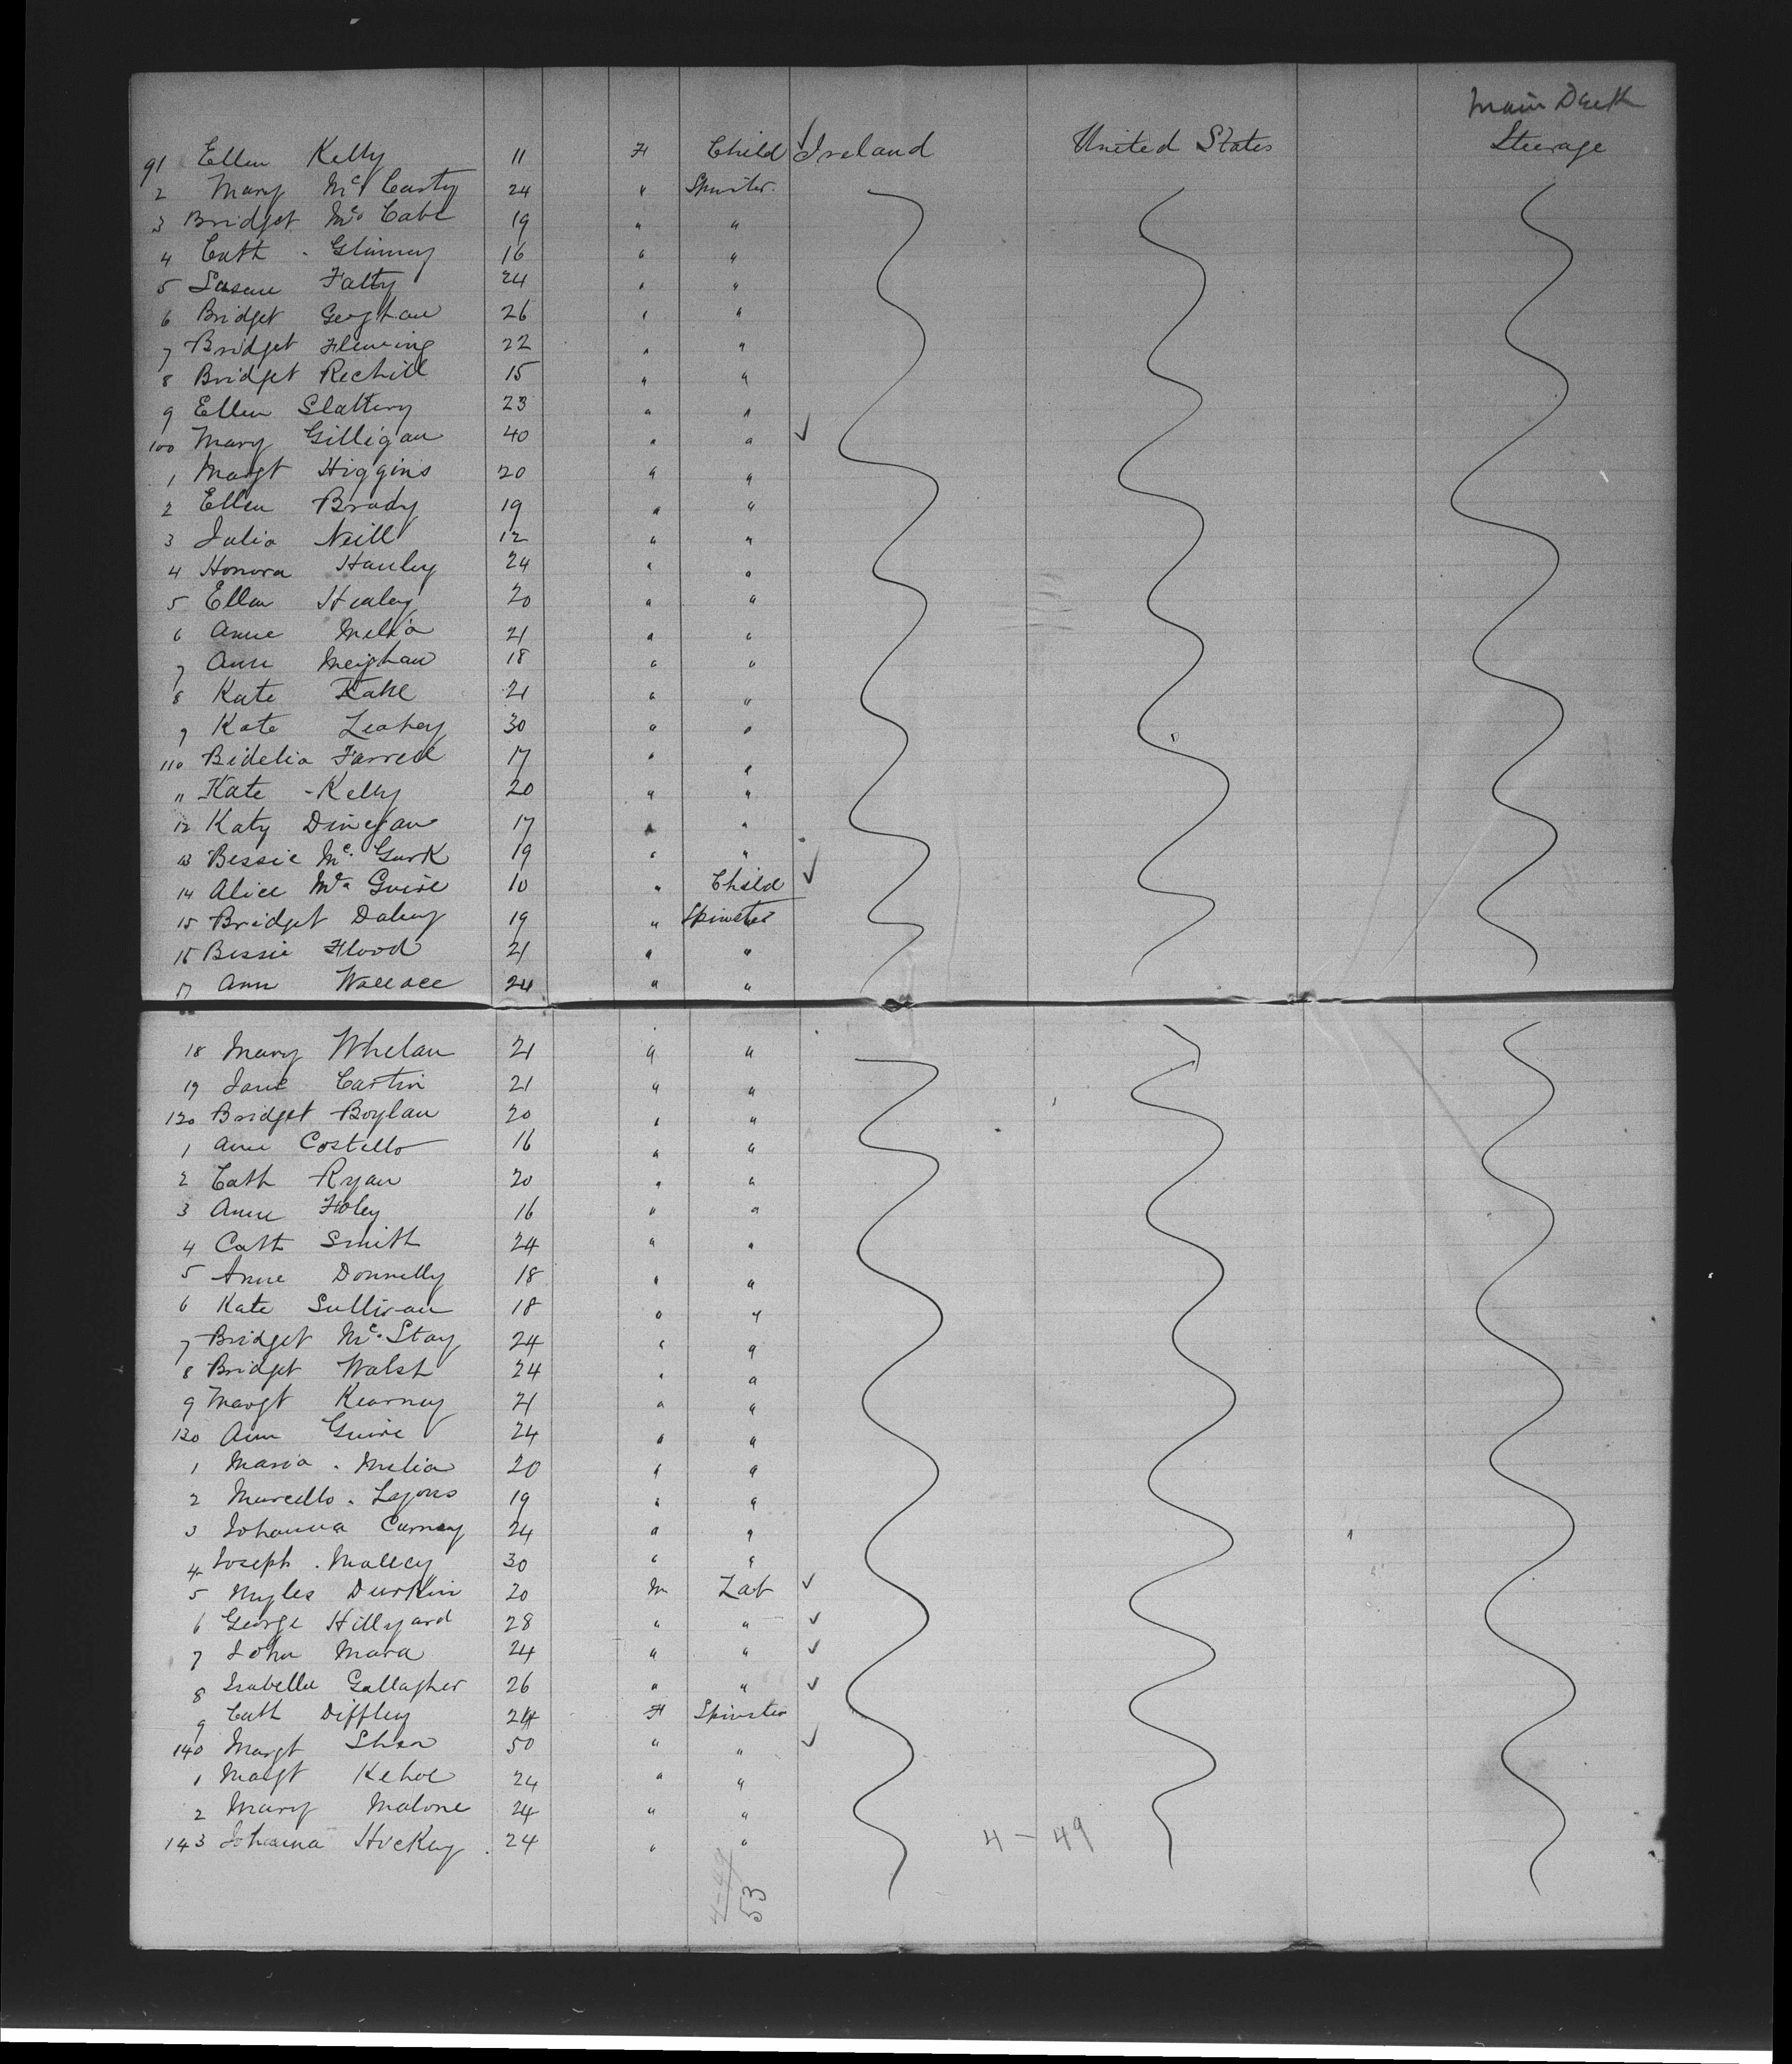 Main Deck
91 Ellen Kelly 11 F Child Ireland United States Steerage
2 Mary McCarty 24 " Spinster
3 Bridget McCabe 19 " "
4 Cath 16 " "
5 Susan Falty 24 " "
6 Bridget Geoghan 26 " "
7 Bridget Fleming 22 " "
8 Bridget Rechill 15 " "
9 Ellen Slattery 23 " "
100 Mary Gilligan 40 " "
1 Margt Higgins 20 " "
2 Ellen Brady 19 " "
3 Julia Neill 12 " "
4 Honora Hanley 24 " "
5 Ellen Healey 20 " "
6 Anne Melia 21 " "
7 Ann Meighan 18 " "
8 Kate Kane 21 " "
9 Kate Leahey 30 " "
110 Bidelia Farrell 17 " "
11 Kate Kelly 20 " "
12 Katy Dinegan 17 " "
13 Bessie Mc Gurk 19 " "
14 Alice Mc Guire 10 " Child
15 Bridget Daley 19 " Spinster
16 Bessie Flood 21 " "
17 Ann Wallace 24 " "
18 Mary Whelan 21 " "
19 Jane Cartin 21 " "
120 Bridget Boylan 20 " "
1 Anne Costello 16 " "
2 Cath Ryan 20 " "
3 Anne Foley 16 " "
4 Cath Smith 24 " "
5 Anne Donnelly 18 " "
6 Kate Sullivan 18 " "
7 Bridget Mc Stay 24 " "
8 Bridget Walsh 24 " "
9 Margt Kearney 21 " "
130 Ann Guire 24 " "
1 Maria Melia 20 " "
2 Marcella Lyons 19 " "
3 Johanna Curney 24 " "
4 Joseph Malley 30 " "
5 Myles Durkin 20 M Lab
6 George Hillyard 28 " "
7 John Mara 24 " "
8 Isabella Gallagher 26 " "
9 Cath Diffley 24 F Spinster
140 Margt Shea 50 " "
1 Margt Kehoe 24 " "
2 Mary Malone 24 " "
143 Johanna Hickey 24 " "
4 - 49
4-49
53